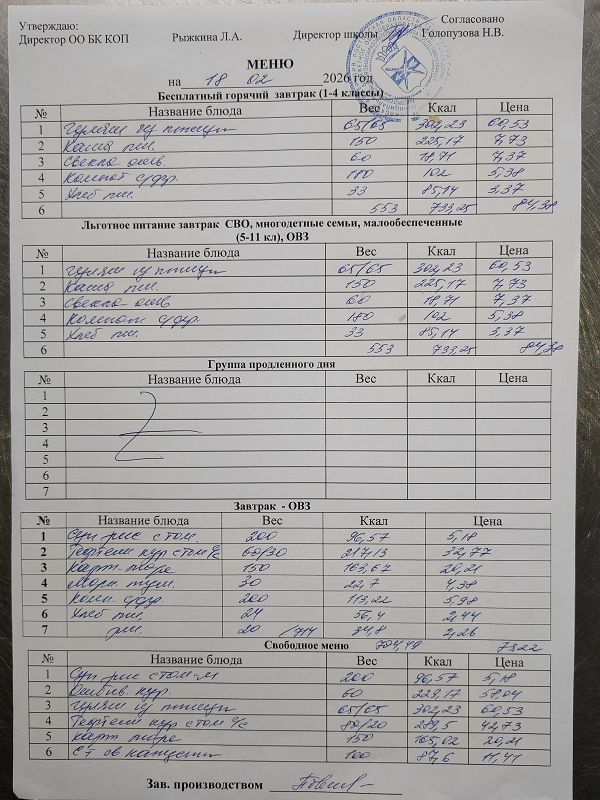 Утверждаю:
Согласовано
Директор ОО БК КОП Рыжкина Л.А. Директор школы Голопузова Н.В.
МЕНЮ
на 18 02 2026 год
Бесплатный горячий завтрак (1-4 классы)
№ Название блюда Вес Ккал Цена
1 Гуляш из птицы 65/65 302,23 60,53
2 Каша пш. 150 225,17 7,73
3 Свекла отв. 60 18,71 7,37
4 Компот с/фр. 180 102 5,38
5 Хлеб пш. 33 85,14 3,37
6 553 733,25 84,38
Льготное питание завтрак СВО, многодетные семьи, малообеспеченные
(5-11 кл), ОВЗ
№ Название блюда Вес Ккал Цена
1 Гуляш из птицы 65/65 302,23 60,53
2 Каша пш. 150 225,17 7,73
3 Свекла отв 60 18,71 7,37
4 Компот с/фр. 180 102 5,38
5 Хлеб пш. 33 85,14 3,37
6 553 733,25 84,38
Группа продленного дня
№ Название блюда Вес Ккал Цена
1
2
3
4
5
6
7
Завтрак - ОВЗ
№ Название блюда Вес Ккал Цена
1 Суп рис с том. 200 96,57 5,18
2 Тефтели кур с том с/с 60/30 217,13 32,77
3 Карт. пюре 150 163,67 20,21
4 Морк. туш. 30 22,7 4,38
5 Комп. с/фр. 200 113,22 5,98
6 Хлеб пш. 24 56,4 2,44
7 рж. 20 /714 34,8 2,26
Свободное меню 704,49 7322
№ Название блюда Вес Ккал Цена
1 Суп рис с том-м 200 96,57 5,18
2 кур. 60 229,17 58,04
3 Гуляш из птицы 65/65 302,23 60,53
4 Тефтели кур с том с/с 80/20 289,5 42,73
5 Карт пюре 150 165,02 20,21
6 С-т св капусты 100 87,6 11,41
Зав. производством